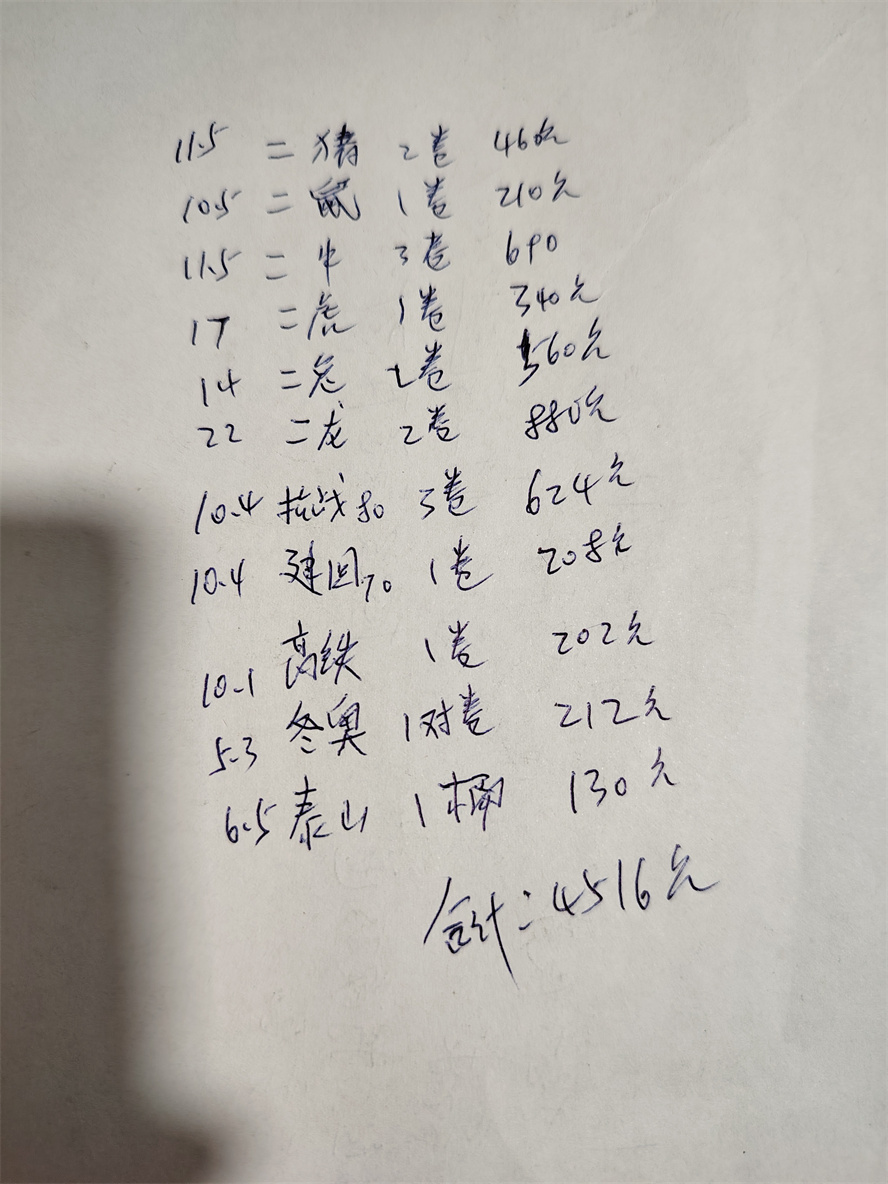 11.5 二猪 2卷 460元
10.5 二鼠 1卷 210元
11.5 二牛 3卷 690
17 二虎 1卷 340元
14 二兔 2卷 560元
22 二龙 2卷 880元
10.4 抗战80 3卷 624元
10.4 建国70 1卷 208元
10.1 高铁 1卷 202元
5.3 冬奥 1对卷 212元
6.5 泰山 1桶 130元
合计:4516元